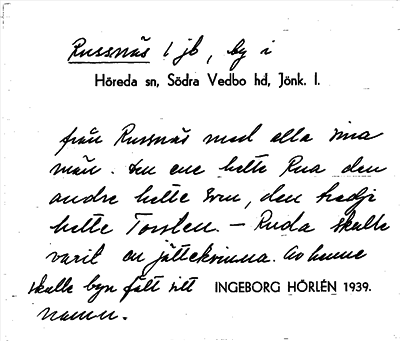 Russnäs 1 jb, by i
Höreda sn, Södra Vedbo hd, Jönk. l.
från Russnäs med alla sina
män. Den ene hette Rua den
andre hette Srn, den tredje
hette Torsten. – Ruda skulle
varit en jättekvinna. Av henne
skulle byn fått sitt INGEBORG HÖRLÉN 1939.
namn.